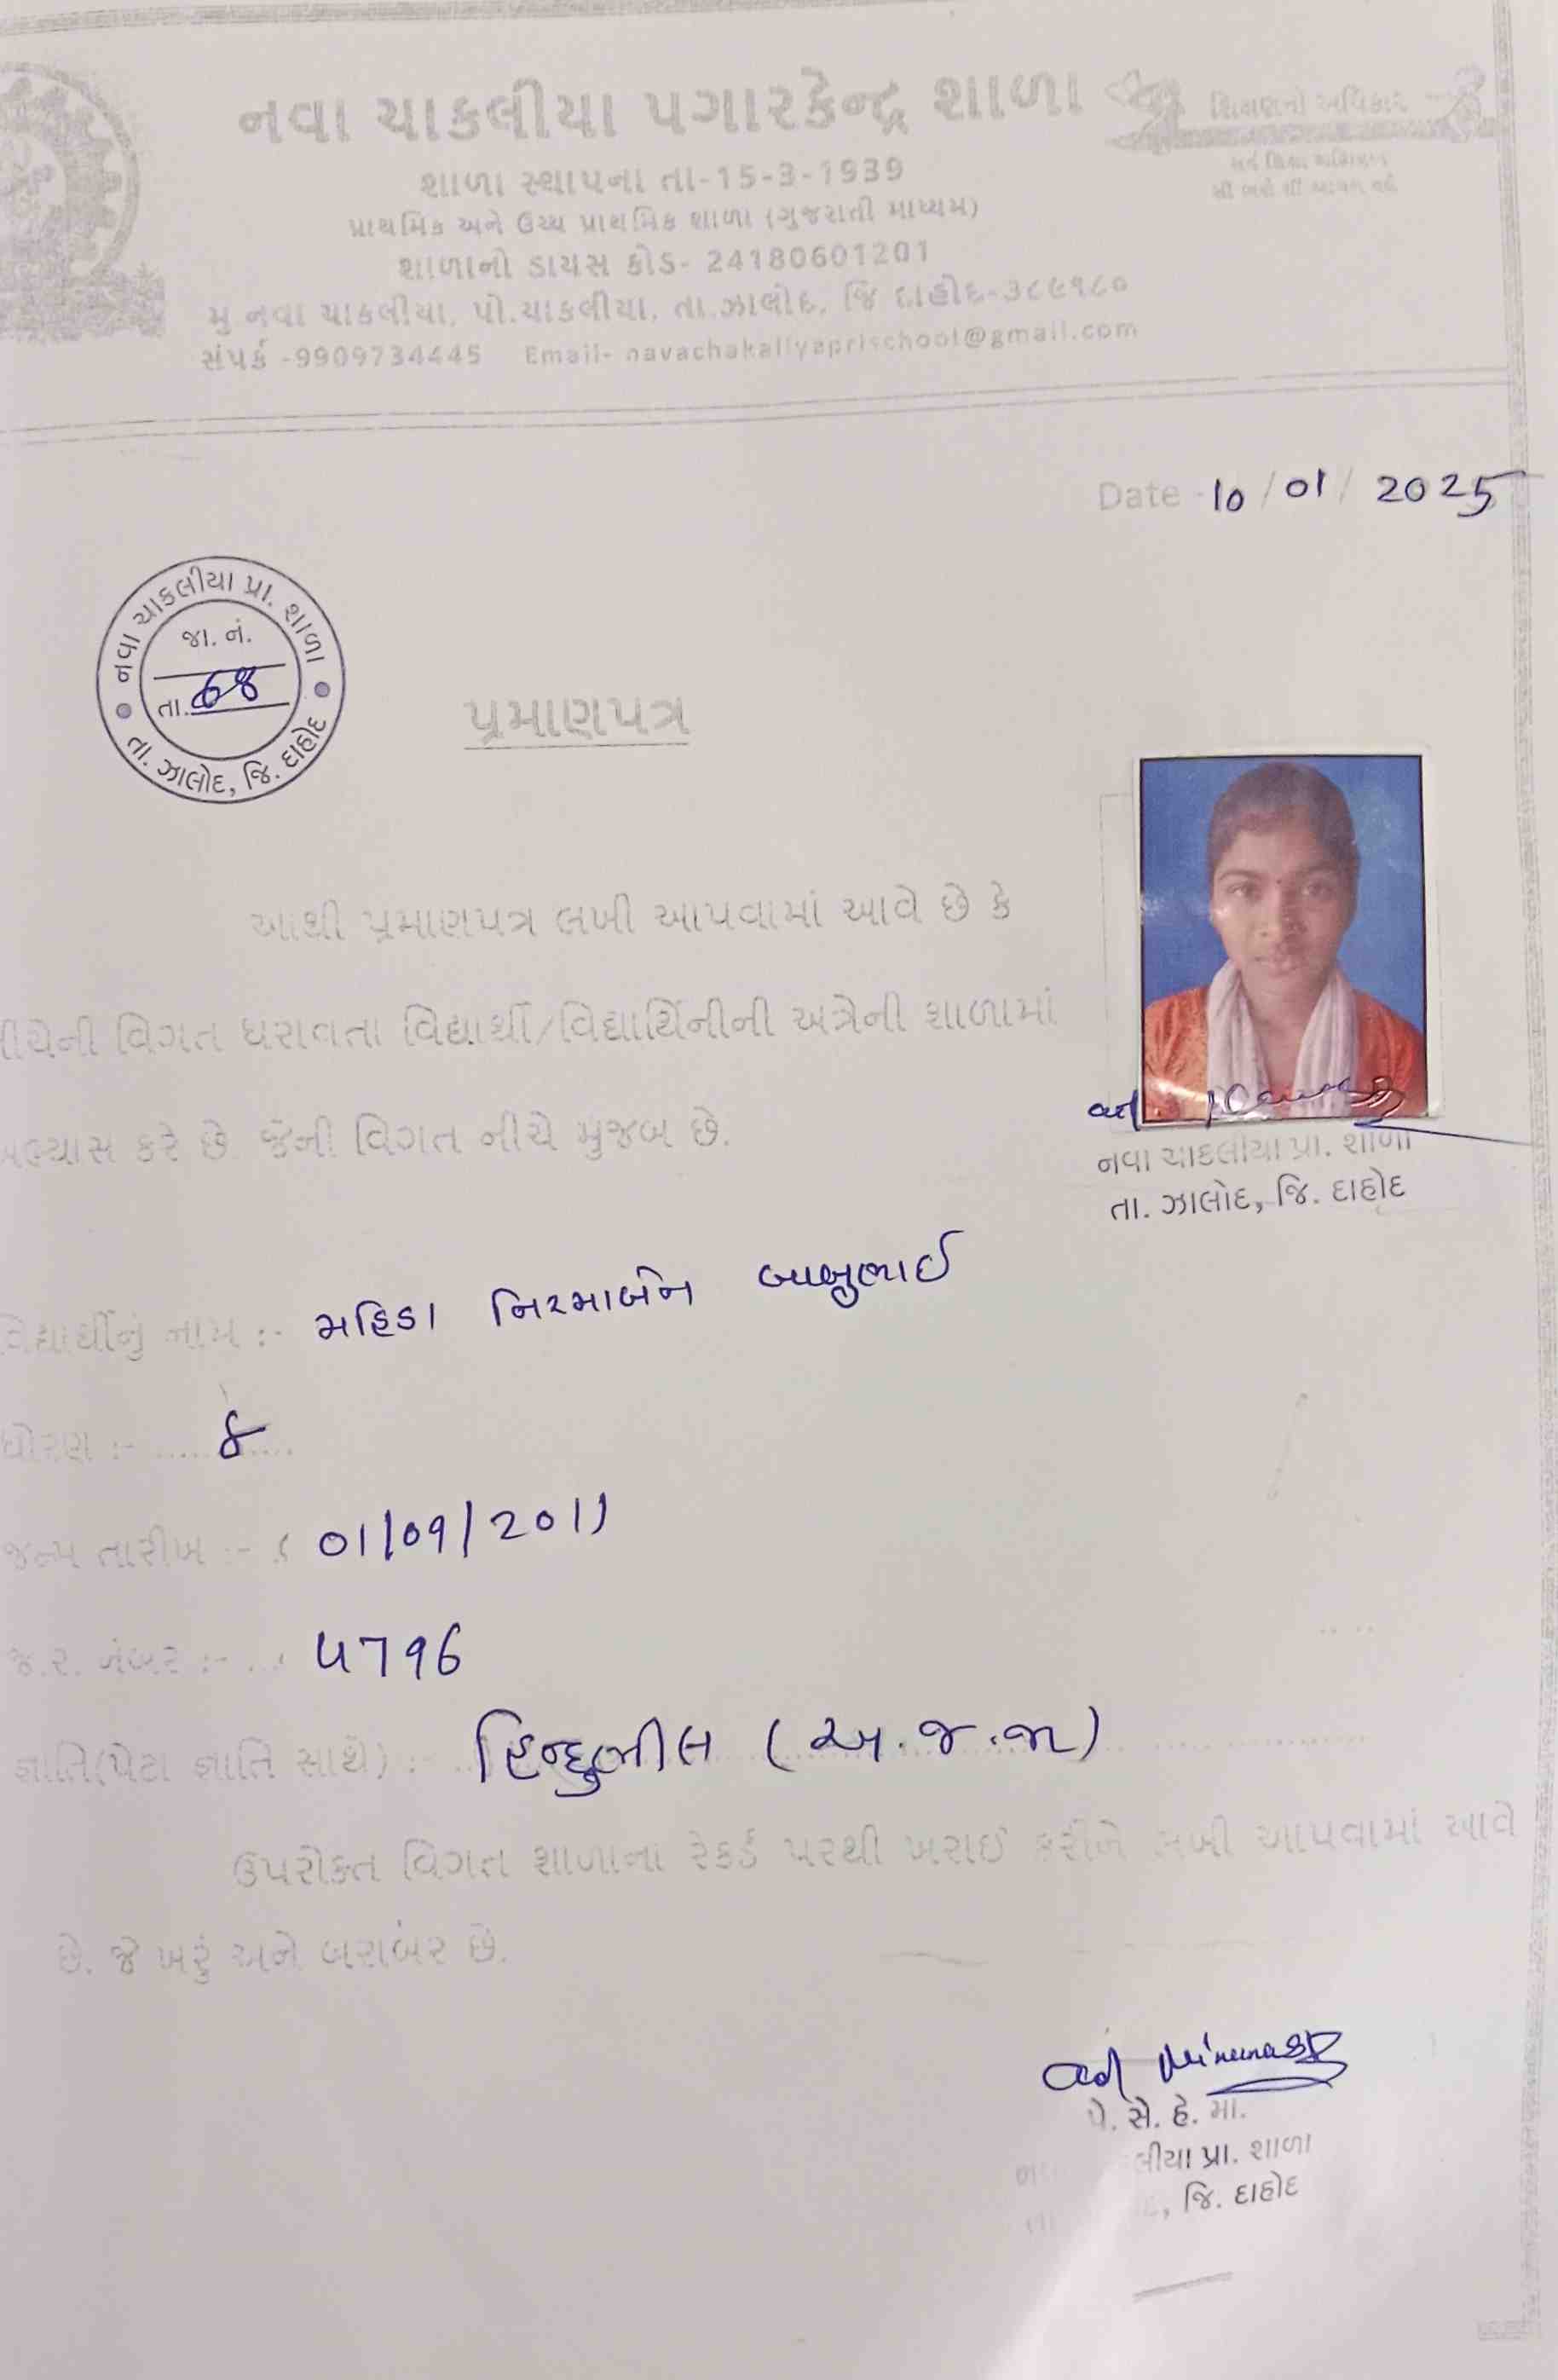 નવા ચાકલીયા પગારકેન્દ્ર શાળા
શિક્ષણનો અધિકાર
શાળા સ્થાપના તા-15-3-1939
પ્રાથમિક અને ઉચ્ચ પ્રાથમિક શાળા (ગુજરાતી માધ્યમ)
શાળાનો ડાયસ કોડ- 24180601201
મુ નવા ચાકલીયા, પો.ચાકલીયા, તા.ઝાલોદ, જિ દાહોદ-૩૮૯૧૮૦
સંપર્ક -9909734445 Email- navachakaliyaprischool@gmail.com
Date - 10/01/2025
નવા ચાકલીયા પ્રા. શાળા
જા. નં.
તા. 68
તા. ઝાલોદ, જિ. દાહોદ
પ્રમાણપત્ર
આથી પ્રમાણપત્ર લખી આપવામાં આવે છે કે
નીચેની વિગત ધરાવતા વિદ્યાર્થી/વિદ્યાર્થિનીની અત્રેની શાળામાં
અભ્યાસ કરે છે. જેની વિગત નીચે મુજબ છે.
નવા ચાકલીયા પ્રા. શાળા
તા. ઝાલોદ, જિ. દાહોદ
વિદ્યાર્થીનું નામ :- મહિડા નિરમાબેન બાબુભાઈ
ધોરણ :- ૪
જન્મ તારીખ :- 01/09/2011
જ.ર. નંબર :- ૫796
જ્ઞાતિ(પેટા જ્ઞાતિ સાથે) :- હિન્દુભીલ (અ.જ.જા)
ઉપરોક્ત વિગત શાળાના રેકર્ડ પરથી ખરાઈ કરીને લખી આપવામાં આવે
છે. જે ખરું અને બરાબર છે.
પે. સે. હે. મા.
લીયા પ્રા. શાળા
, જિ. દાહોદ